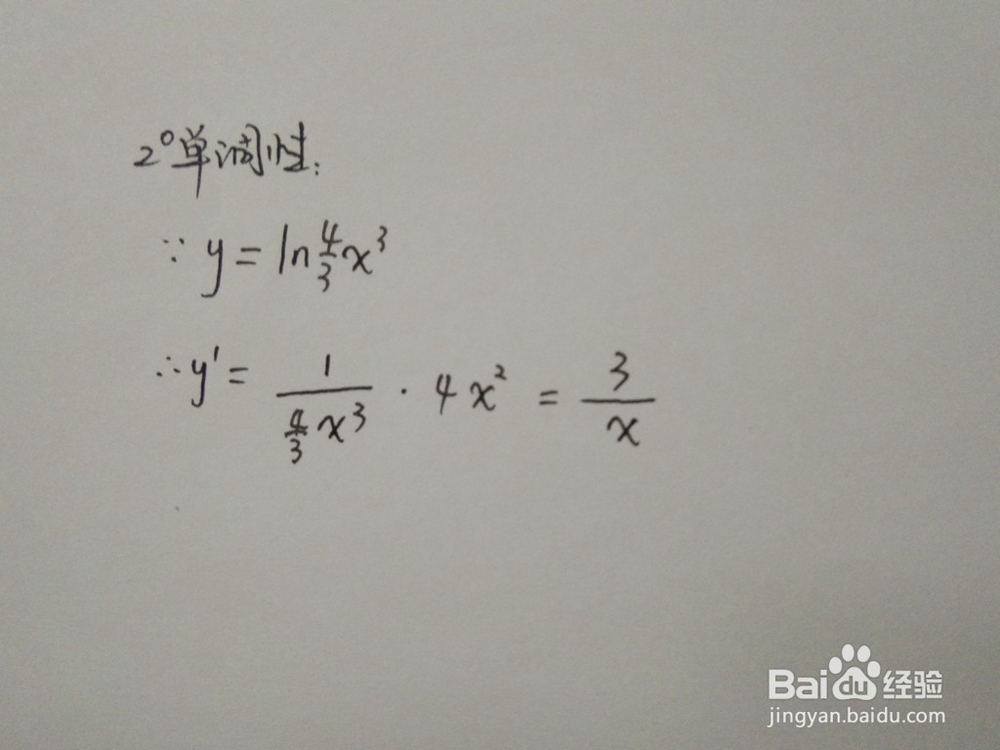 2°单调性:
∵ y = ln 4/3 x³
∴ y' = 1/(4/3 x³) · 4x² = 3/x
Baidu 经验
jingyan.baidu.com